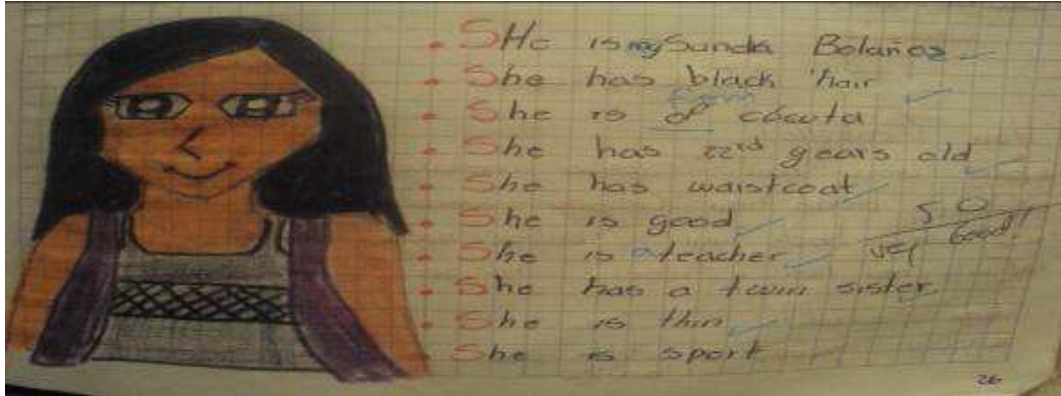 • SHe is my Sunda Bolaños
• She has black hair
from
• She is of cúcuta
• She has 22rd years old
• She has waistcoat
• She is good
5 0
• She is a teacher
very Good!
• She has a twin sister.
• She is thin
• She is sport
26